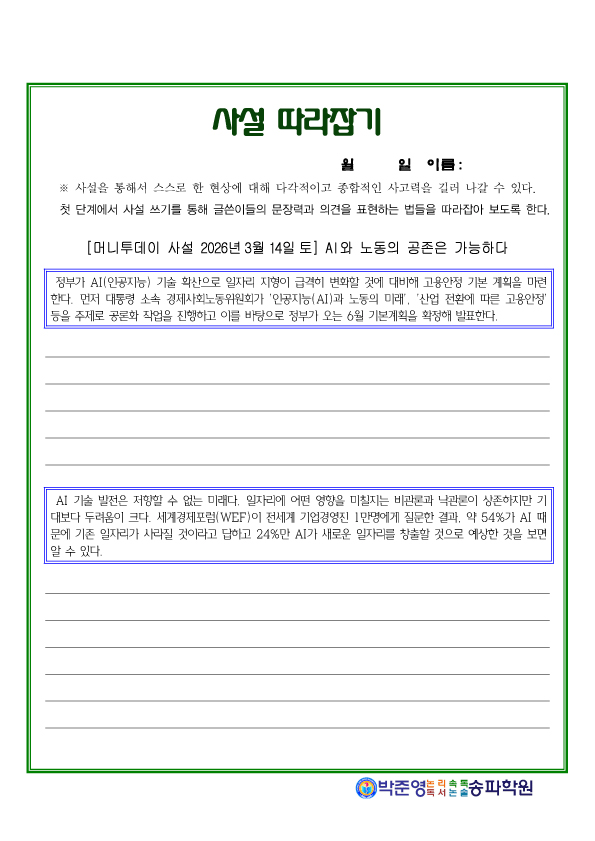 사설 따라잡기
월 일 이름:
※ 사설을 통해서 스스로 한 현상에 대해 다각적이고 종합적인 사고력을 길러 나갈 수 있다.
첫 단계에서 사설 쓰기를 통해 글쓴이들의 문장력과 의견을 표현하는 법들을 따라잡아 보도록 한다.
[머니투데이 사설 2026년 3월 14일 토] AI와 노동의 공존은 가능하다
정부가 AI(인공지능) 기술 확산으로 일자리 지형이 급격히 변화할 것에 대비해 고용안정 기본 계획을 마련
한다. 먼저 대통령 소속 경제사회노동위원회가 '인공지능(AI)과 노동의 미래', '산업 전환에 따른 고용안정'
등을 주제로 공론화 작업을 진행하고 이를 바탕으로 정부가 오는 6월 기본계획을 확정해 발표한다.
AI 기술 발전은 저항할 수 없는 미래다. 일자리에 어떤 영향을 미칠지는 비관론과 낙관론이 상존하지만 기
대보다 두려움이 크다. 세계경제포럼(WEF)이 전세계 기업경영진 1만명에게 질문한 결과, 약 54%가 AI 때
문에 기존 일자리가 사라질 것이라고 답하고 24%만 AI가 새로운 일자리를 창출할 것으로 예상한 것을 보면
알 수 있다.
박준영 논리속독 독서논술 송파학원